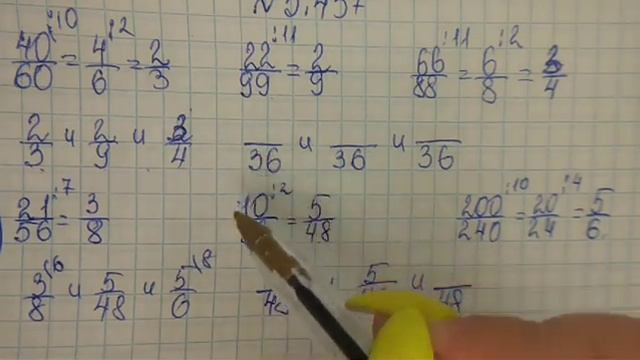 № 5.457
40/60 :10 = 4/6 :2 = 2/3 22/99 :11 = 2/9 66/88 :11 = 6/8 :2 = 3/4
2/3 и 2/9 и 3/4 /36 и /36 и /36
21/56 :7 = 3/8 10/ :2 = 5/48 200/240 :10 = 20/24 :4 = 5/6
3/8 \6 и 5/48 и 5/6 \8 5/ и /48